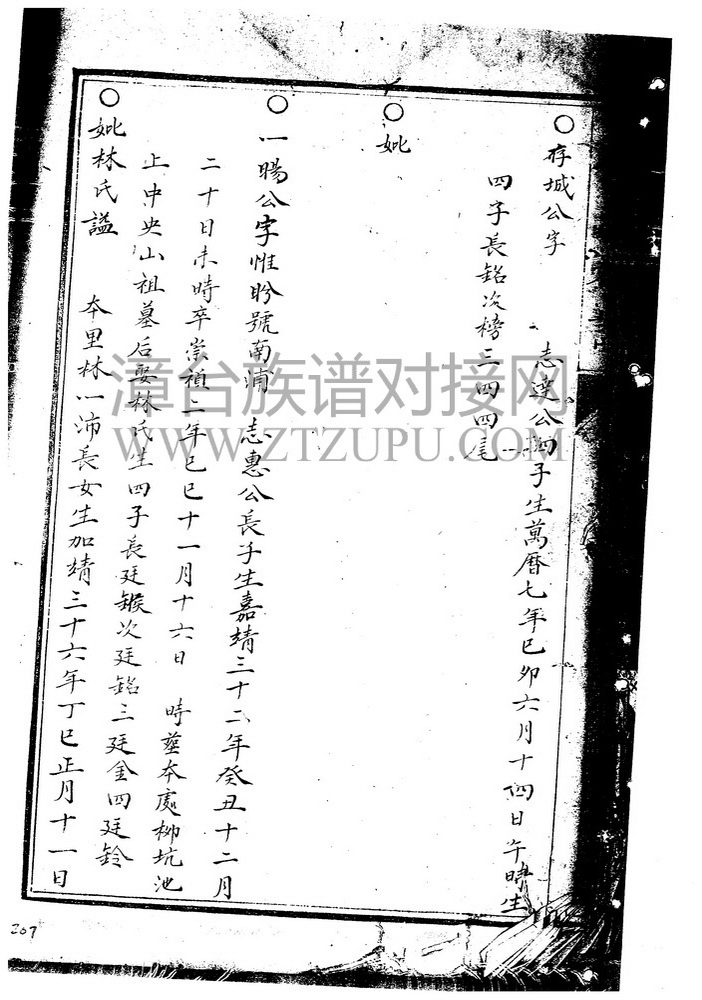 ○存城公字
志達公四子生萬曆七年己卯六月十四日午時生
四子長銘次榜三四四尾
○妣
○一暘公字惟盼號南浦 志惠公長子生嘉靖三十二年癸丑十二月
二十日未時卒崇禎二年己巳十一月十六日 時塟本處柳坑池
止中央山祖墓后娶林氏生四子長廷鍭次廷銘三廷金四廷鈴
○妣林氏謚
本里林一沛長女生加靖三十六年丁巳正月十一日
漳台族谱对接网
WWW.ZTZUPU.COM
207